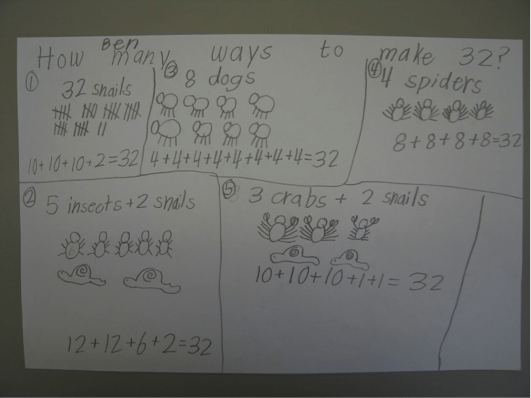 Ben
How many ways to make 32?
① 32 snails
10+10+10+2=32
③ 8 dogs
4+4+4+4+4+4+4+4=32
④ 4 spiders
8+8+8+8=32
② 5 insects+2 snails
12+12+6+2=32
⑤ 3 crabs + 2 snails
10+10+10+1+1= 32